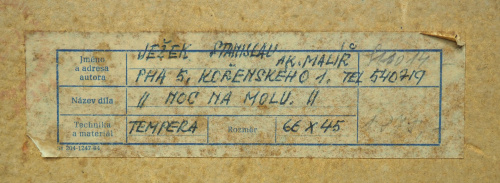 JEŽEK STANISLAV AK. MALÍŘ
Jméno a adresa autora
PHA 5, KOŘENSKÉHO 1, TEL 540719
Název díla
„ NOC NA MOLU. "
Technika a materiál
TEMPERA
Rozměr
66 X 45